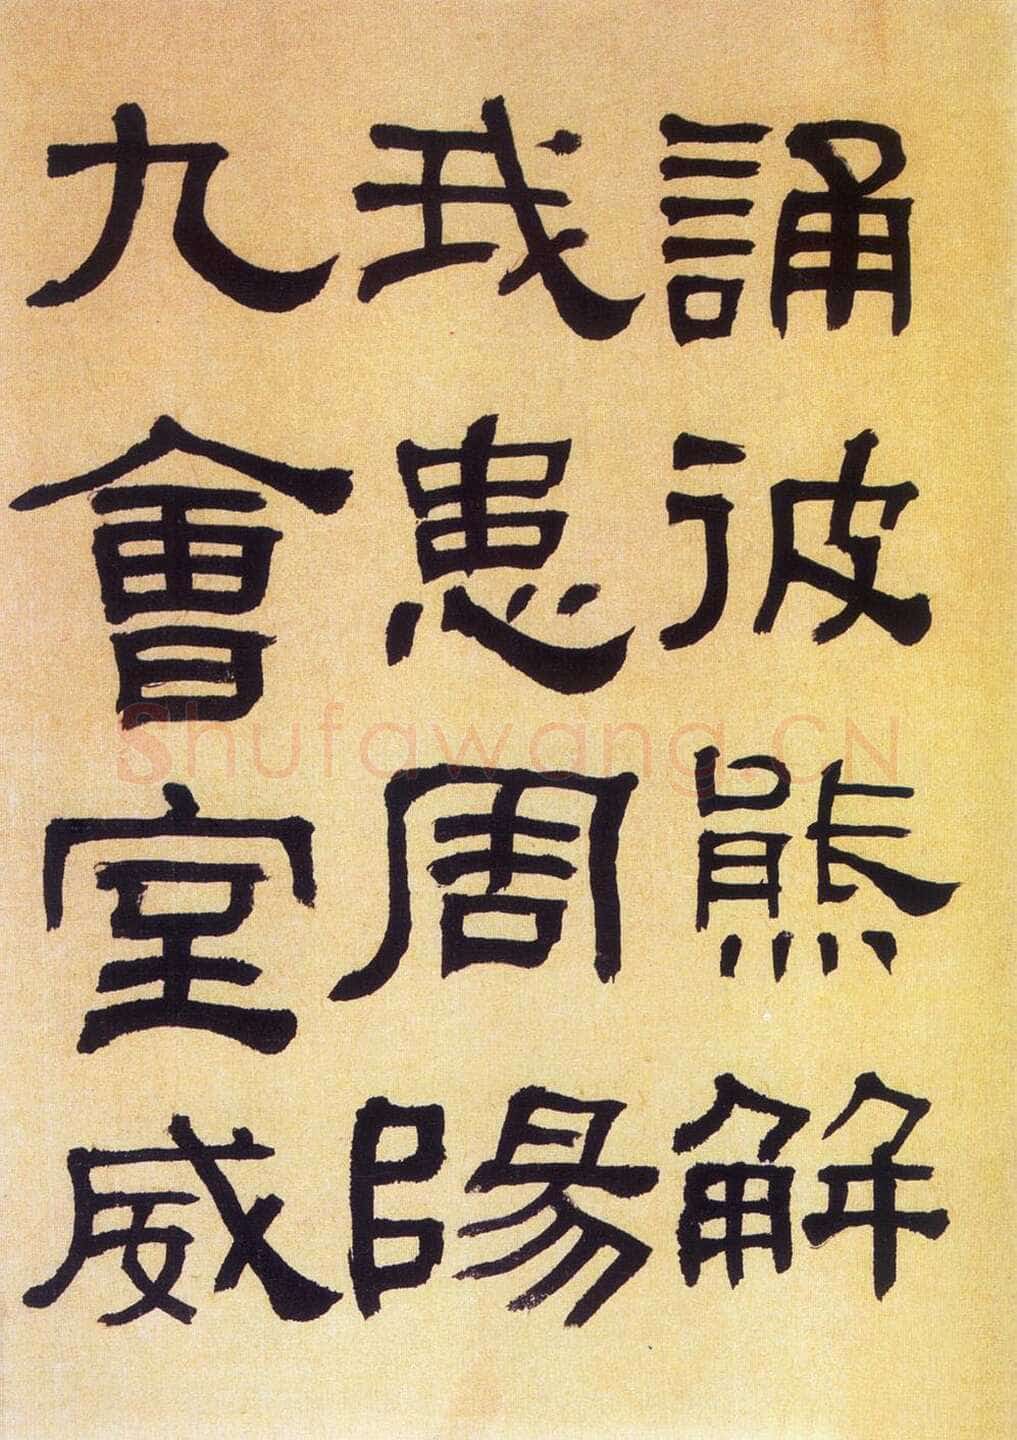 誦彼熊解
我患周陽
九會室威
Shufawang.CN